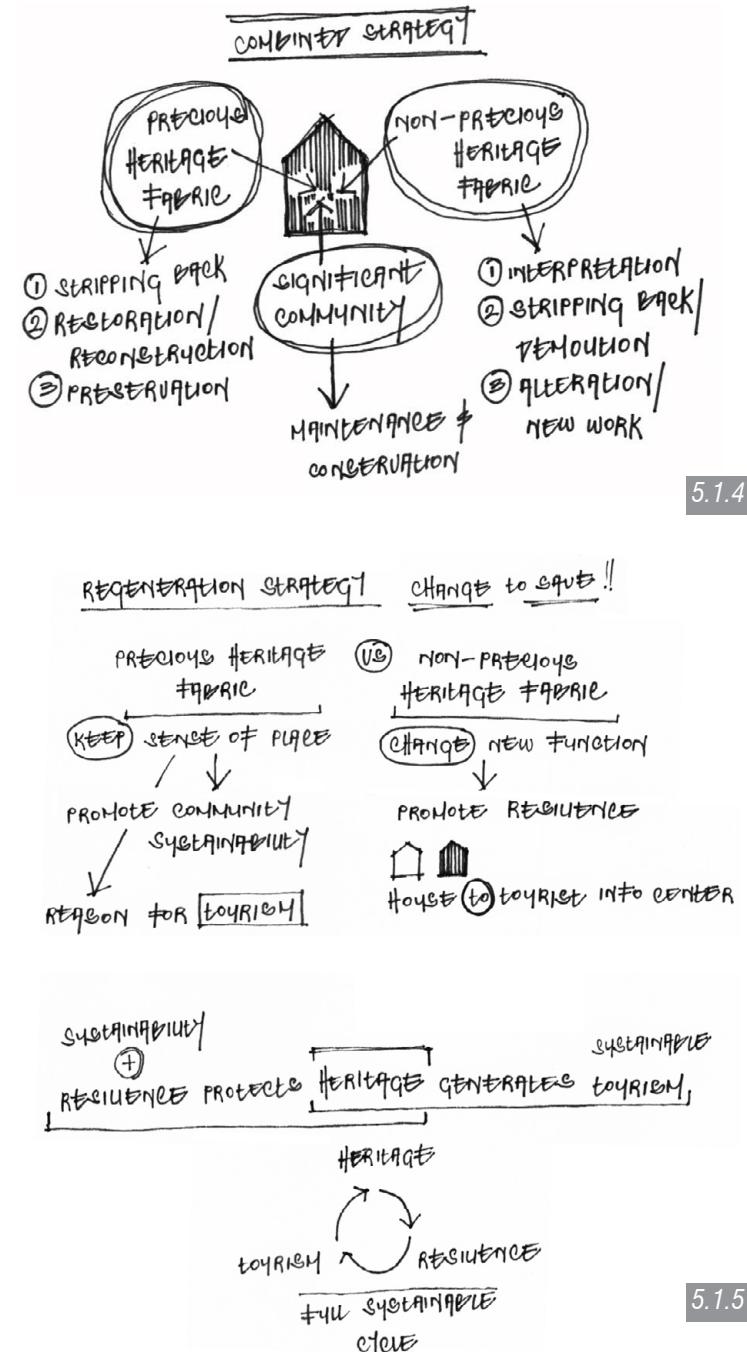 COMBINED STRATEGY
PRECIOUS
HERITAGE
FABRIC
NON-PRECIOUS
HERITAGE
FABRIC
SIGNIFICANT
COMMUNITY
① STRIPPING BACK
② RESTORATION/
RECONSTRUCTION
③ PRESERVATION
MAINTENANCE &
CONSERVATION
① INTERPRETATION
② STRIPPING BACK/
DEMOLITION
③ ALTERATION/
NEW WORK
5.1.4
REGENERATION STRATEGY CHANGE to SAVE!!
PRECIOUS HERITAGE
FABRIC
VS
NON-PRECIOUS
HERITAGE FABRIC
KEEP SENSE OF PLACE
PROMOTE COMMUNITY
SUSTAINABILITY
REASON FOR TOURISM
CHANGE NEW FUNCTION
PROMOTE RESILIENCE
HOUSE to TOURIST INFO CENTER
SUSTAINABILITY
+
RESILIENCE PROTECTS HERITAGE GENERATES
SUSTAINABLE
TOURISM
HERITAGE
RESILIENCE
TOURISM
FULL SUSTAINABLE
CYCLE
5.1.5